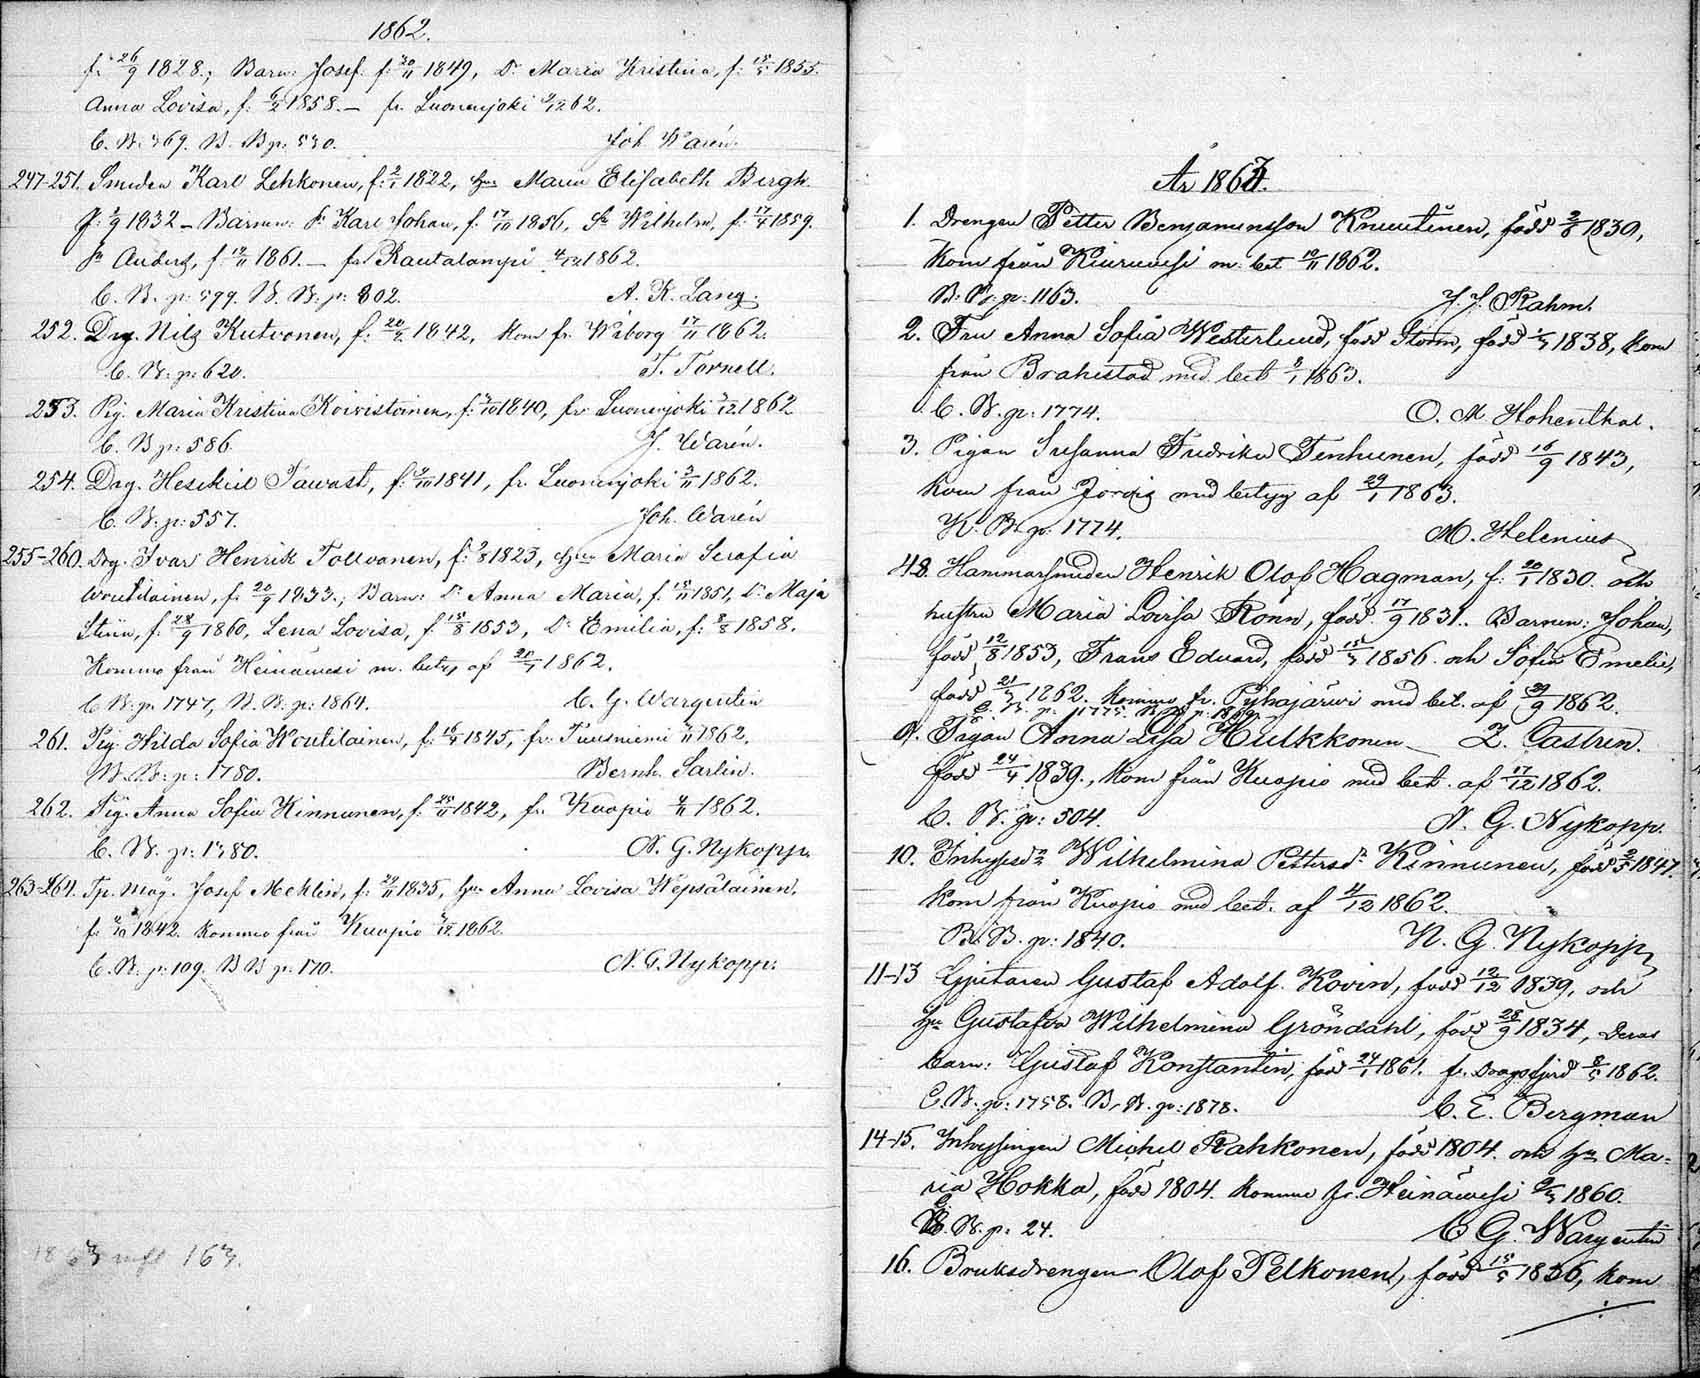 1862.
f. 26/9 1828.; Barn: Josef f. 20/11 1849, Dr Maria Kristina, f. 18/5 1855.
Anna Lovisa, f. 6/2 1858. — fr. Suonenjoki 9/12 62.
C. B. 369. B. B. p: 530. Joh. Warén.
247-251. Smeden Karl Lehkonen, f: 2/1 1822, Hu Maria Elisabeth Bergh
f: 1/9 1832 — Barnen: Sn Karl Johan, f. 17/10 1856, Sn Wilhelm, f. 17/4 1859.
Sn Anders, f. 19/11 1861. — fr. Rautalampi 4/12 1862.
C. B. p: 599. B. B. p: 802. A. K. Lang.
252. Drg. Nils Kutvonen, f: 20/2 1842, kom fr. Wiborg 17/11 1862.
C. B. p: 620. T. Tornell.
253. Pig. Maria Kristina Koivistoinen, f: 1/10 1840, fr. Suonenjoki 3/12 1862
C. B p: 586. J. Warén.
254. Drg. Hesekiel Tawast, f: 1/10 1841, fr. Suonenjoki 2/11 1862.
C. B: p: 557. Joh. Warén
255-260. Drg. Ivar Henrik Tollvanen, f: 9/8 1823, Hu Maria Serafia
Woutilainen, f. 20/9 1833.; Barn: Dr Anna Maria, f. 18/11 1851, Dr Maja
Stina, f. 28/9 1860, Lena Lovisa, f. 15/8 1853, Dr Emilia, f: 8/8 1858.
Komme från Heinäwesi m. betyg af 21/7 1862.
C B: p: 1747, B. B. p: 1864. C. G. Wargentin
261. Pig. Hilda Sofia Woutilainen, f: 16/4 1845, fr. Tuusniemi 7/11 1862.
B. B: p: 1780. Bernh. Sarlin.
262. Pig. Anna Sofia Kinnunen, f. 25/11 1842, fr. Kuopio 4/11 1862.
C. B. p: 1780. N. G. Nykopp.
263-264. Tp. måg. Josef Mehlin, f: 29/11 1835, Hu Anna Lovisa Wepsäläinen,
f. 2/10 1842. komme från Kuopio 3/12 1862.
C. B. p: 109. B B p: 170. N. G. Nykopp.
1863 163.
År 1863.
1. Drengen Petter Benjaminsson Knuutinen, född 3/8 1830,
Kom från Kiuruwesi m. bet 10/11 1862.
B: B: p: 1163. J. J. Rahm.
2. Fru Anna Sofia Westerlund, född Storm, född 1/7 1838, kom
från Brahestad med bet 8/1 1863.
C. B. p: 1774. O. M. Hohenthal.
3. Pigan Susanna Fredrika Tenhunen, född 16/9 1843,
kom från Jorois med betyg af 29/1 1863.
K. B. p: 1774. M. Helenius
4-8. Hammarsmeden Henrik Olof Hagman, f: 20/1 1830. och
hustru Maria Lovisa Ronn, född 17/9 1831. Barnen: Johan,
född 12/8 1853, Frans Edvard, född 15/7 1856. och Sofia Emelie,
född 21/3 1862. komme fr. Pyhäjärvi med bet. af 29/9 1862.
C. B. p: 1775. B. B. p: 1869.
9. Pigan Anna Lisa Hulkkonen — Z. Castren.
född 24/4 1839., kom från Kuopio med bet. af 17/12 1862.
C. B. p: 504. N. G. Nykopp.
10. Inhysesdr Wilhelmina Pettersdr Kinnunen, född 2/5 1847.
kom från Kuopio med bet. af 4/12 1862.
B. B. p: 1840. N. G. Nykopp
11-13 Gjutaren Gustaf Adolf Kovin, född 12/12 1839, och
Hu Gustafva Wilhelmina Gröndahl, född 28/9 1834, deras
barn: Gustaf Konstantin, född 24/1 1861. fr. Dragsfjerd 8/5 1862.
C. B. p: 1758. B. B. p: 1878. C. E. Bergman
14-15. Inhysingen Michel Rahkonen, född 1804. och Hu Ma-
ria Hokka, född 1804. komme fr. Heinäwesi 9/3 1860.
C. B. p. 24. C G. Wargentin
16. Bruksdrengen Olof Pelkonen, född 15/5 1836, kom